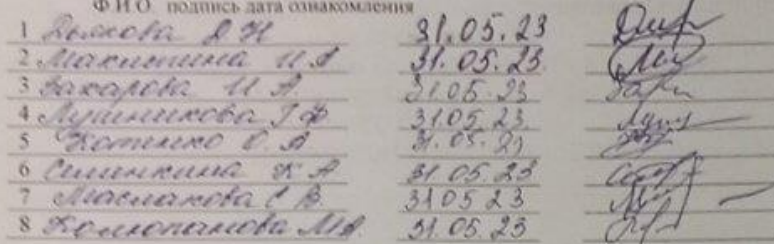 Ф И О подпись дата ознакомления
1 Дьякова Д Н 31.05.23
2 Макитина И А 31.05.23
3 Захарова И А 31.05.23
4 Лушникова Г Ф 31.05.23
5 Котенко О. В 31.05.23
6 Семенкина К А 31.05.23
7 Маслакова С В. 31.05.23
8 М.А. 31.05.23